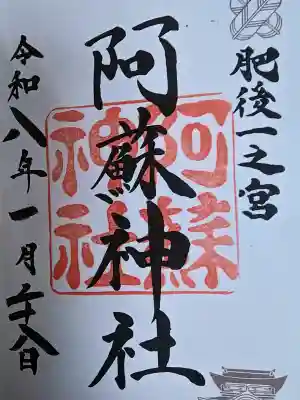 肥後一之宮
阿蘇神社
阿蘇
神社
令和八年一月二十八日